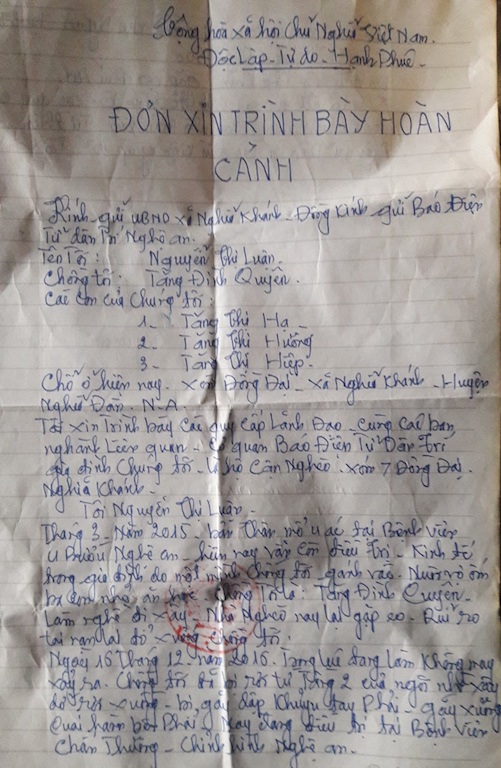 Cộng hòa xã hội chủ Nghĩa Việt Nam.
Độc Lập - Tự do - Hạnh Phúc -
ĐƠN XIN TRÌNH BÀY HOÀN
CẢNH
Kính gửi UBND xã Nghĩa Khánh - Đồng Kính gửi Báo Điện
Tử dân Trí Nghệ an.
Tên Tôi : Nguyễn Thị Luận.
Chồng tôi : Tăng Đình Quyền.
Các con của Chúng tôi :
1_ Tăng Thị Hạ _
2_ Tăng Thị Hương
3_ Tăng Thị Hiệp.
Chỗ ở hiện nay. Xóm Đồng Đại - xã Nghĩa Khánh - Huyện
Nghĩa Đàn - N.A.
Tôi xin Trình bày các quý cấp Lãnh Đạo - cùng các ban
nghành Liên quan - cơ quan Báo Điện Tử Dân Trí
gia đình Chúng tôi - là hộ Cận Nghèo. xóm 7 Đồng Đại.
Nghĩa Khánh -
Tôi Nguyễn Thị Luận -
Tháng 3 - Năm 2015 - bản Thân mổ u ác tại Bệnh Viện
u Bướu Nghệ an - hiện nay vẫn còn điều Trị - Kinh tế
trong gia đình do một mình Chồng tôi gánh vác - Nuôi vợ ốm
ba con nhỏ ăn học. Chồng Tôi là : Tăng Đình Quyền -
Làm nghề đi xây - Nhà Nghèo nay lại gặp eo - Rủi ro
tai nạn lại đổ xuống chồng tôi.
Ngày 16 Tháng 12 năm 2016. Trong lúc đang làm không may
xảy ra. Chồng tôi đã bị rơi từ Tầng 2 của ngôi nhà xây
dở rơi xuống - bị gãy dập Khuỷu tay Phải - gãy xương
Quai hàm bên Phải. Nay đang điều trị tại Bệnh Viện
Chấn Thương - Chỉnh hình Nghệ an.